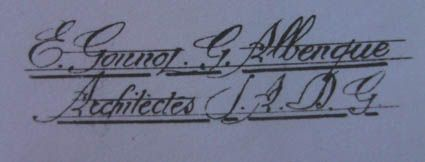 E. Gounot. G. Albenque
Architectes S. A. D. G